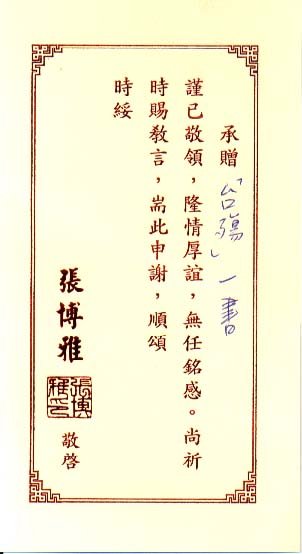 承贈「台殤」一書
謹已敬領，隆情厚誼，無任銘感。尚祈
時賜教言，耑此申謝，順頌
時綏
張博雅
張博雅印
敬啓